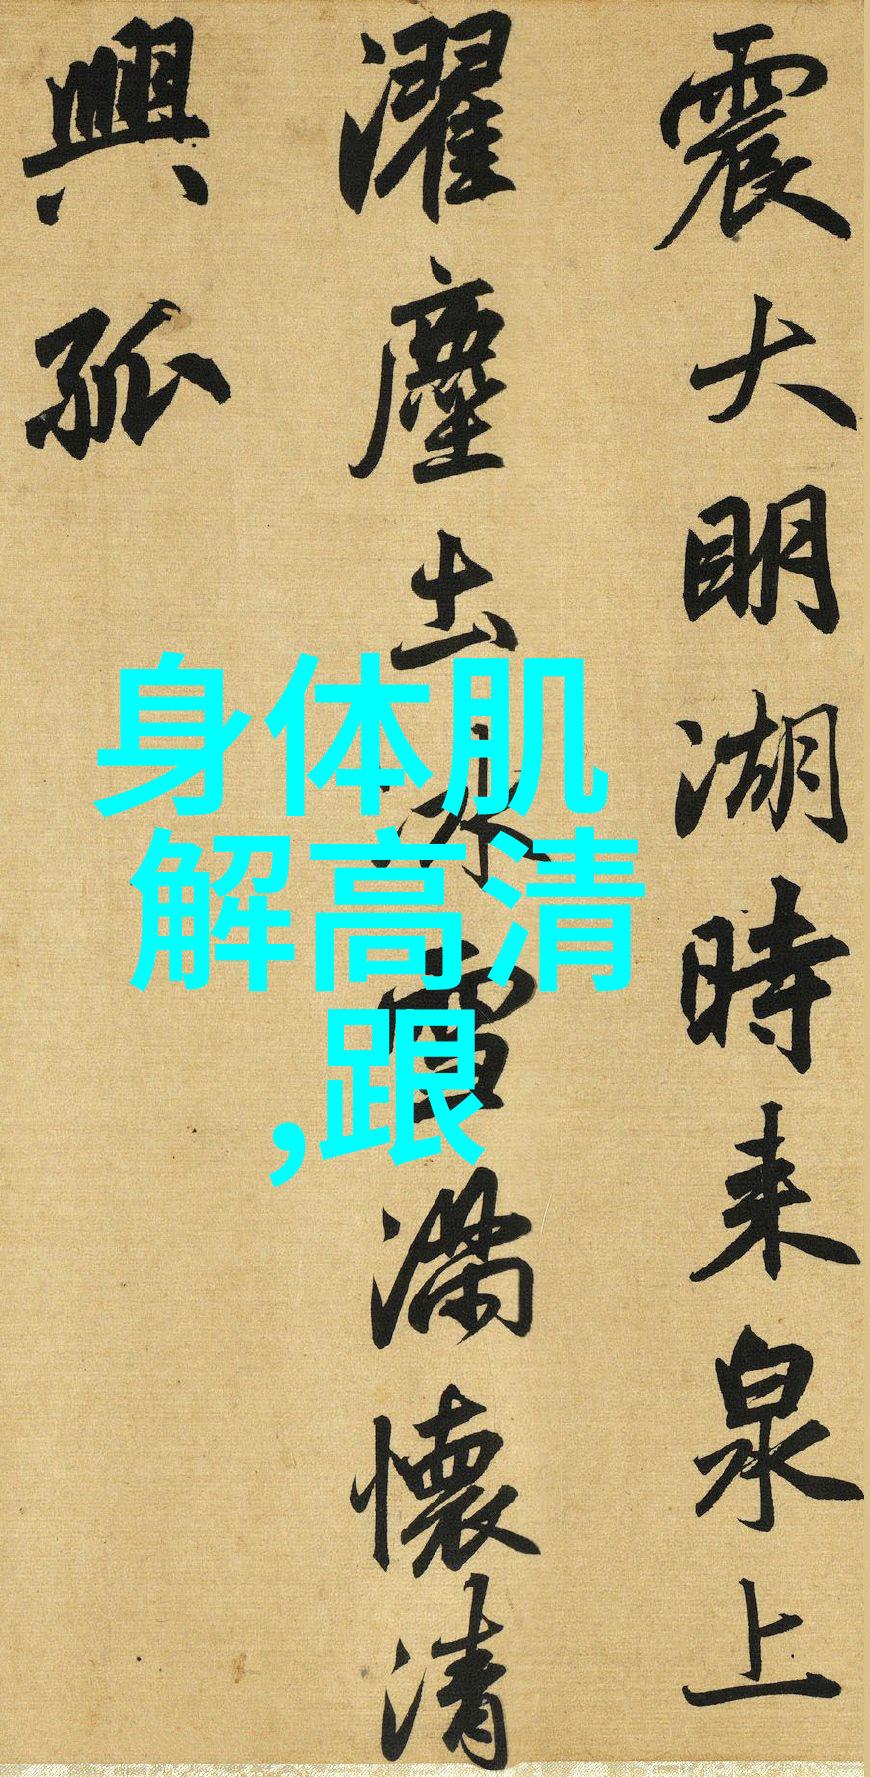 震大明湖時来泉上
濯塵土冰雪滿懷清
興孤
身体肌
解高清
,跟